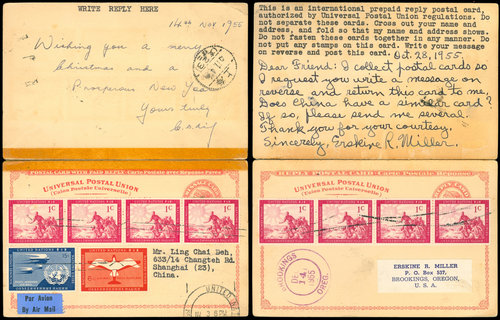 WRITE REPLY HERE
14th Nov 1955
Wishing you a merry
Christmas and a
Prosperous New Year
Yours truly
This is an international prepaid reply postal card,
authorized by Universal Postal Union regulations. Do
not separate these cards. Cross out your name and
address, and fold so that my name and address shows.
Do not fasten these cards together in any manner. Do
not put any stamps on this card. Write your message
on reverse and post this card.
Oct. 28, 1955.
Dear Friend: I collect postal cards so
I request you write a message on
reverse and return this card to me.
Does China have a similar card?
If so, please send me several.
Thank you for your courtesy.
Sincerely, Erskine R. Miller.
POSTAL CARD WITH PAID REPLY Carte Postale avec Réponse Payée
UNIVERSAL POSTAL UNION
(Union Postale Universelle)
1c
1c
1c
1c
UNITED NATIONS
15c
UNITED NATIONS
Par Avion
By Air Mail
Mr. Ling Chai Deh,
633/14 Changteh Rd.
Shanghai (23),
China.
REPLY POSTAL CARD Carte Postale Réponse
UNIVERSAL POSTAL UNION
(Union Postale Universelle)
1c
1c
1c
1c
BROOKINGS
DEC
14
1955
OREG.
ERSKINE R. MILLER
P. O. Box 537,
BROOKINGS, OREGON,
U. S. A.